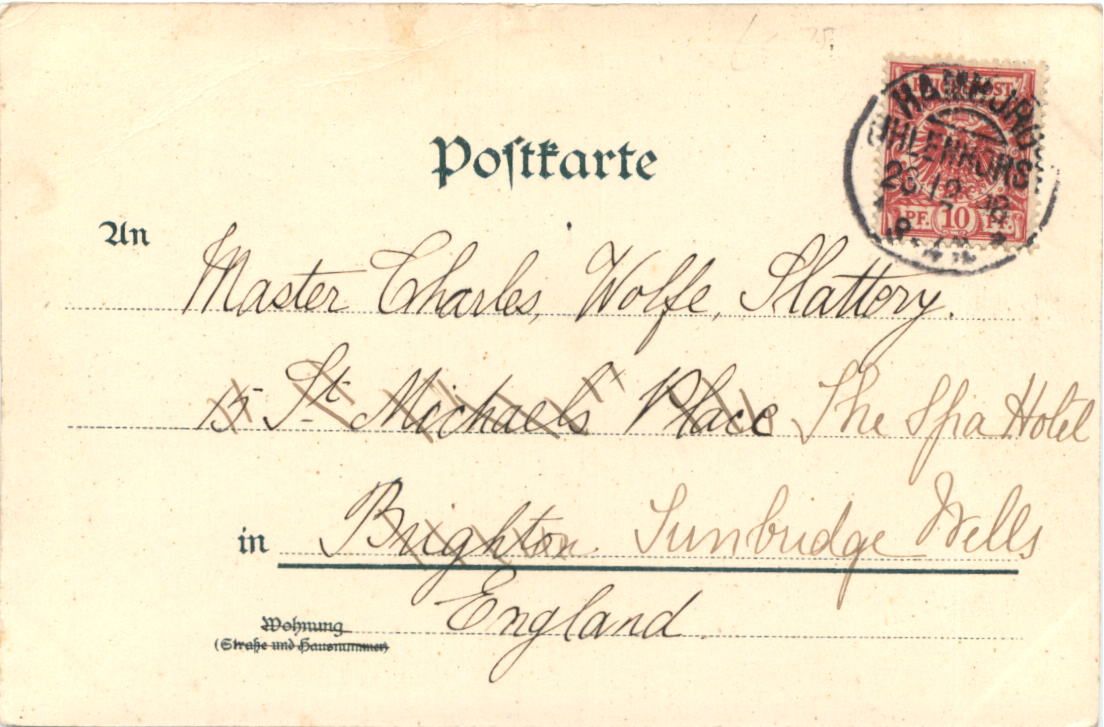 Postkarte
REICHSPOST
HAMBURG
UHLENHORST
26 12 98
PF. 10 PF.
An Master Charles, Wolfe, Slattery.
15 St. Michaels' Place The Spa Hotel
in Brighton Tunbridge Wells
England.
Wohnung
(Straße und Hausnummer)